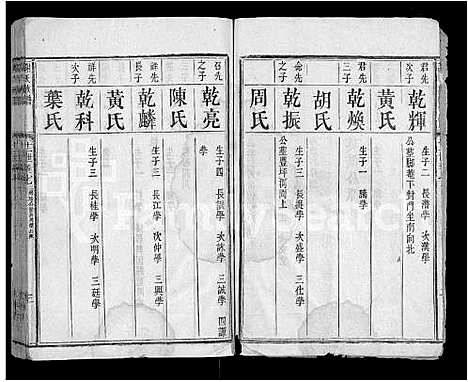 君先
次子
乾輝
生子二 長潛學 次漢學
公墓腳菴下對門坐南向北
黃氏
君先
三子
乾煥
生子一 勝學
胡氏
念先
之子
乾振
生子三 長
學 三化學
公墓豊坪
上
周氏
召先
之子
乾亮
生子四 長
學 次詠學 三誠學 四譚
學
陳氏
祥先
長子
乾麟
生子三 長江學 次仲學 三興學
黃氏
祥先
次子
乾科
生子三 長桂學 次明學 三廷學
葉氏